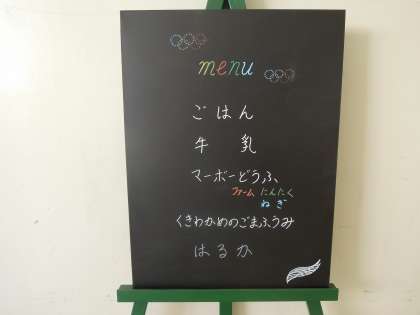 menu
ごはん
牛乳
マーボーどうふ
ファーム たんたく
ねぎ
くきわかめのごまふうみ
はるか